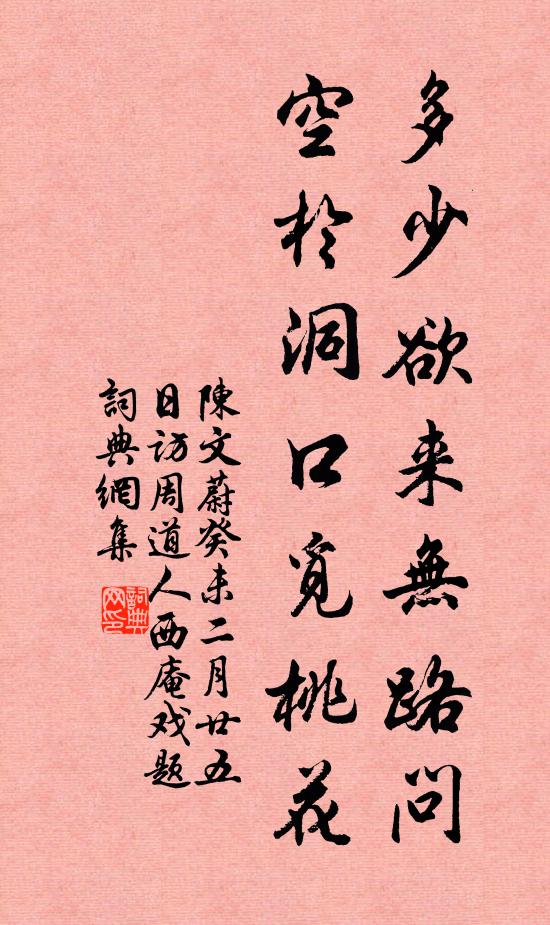 多少欲来無路問
空於洞口覓桃花
陳文蔚癸未二月廿五
日訪周道人西庵戏题
詞典網集
詞典网印